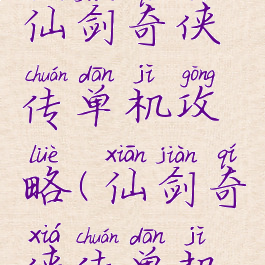 仙剑奇侠
chuán dān jī gōng
传单机攻
lüè xiān jiàn qí
略(仙剑奇
xiá chuán dān jī
侠传单机